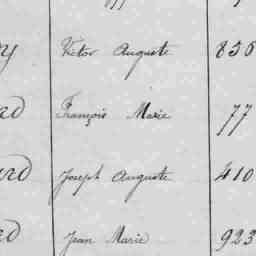 y Victor Auguste 856
rd François Marie 77
ard Joseph Auguste 410
rd Jean Marie 923